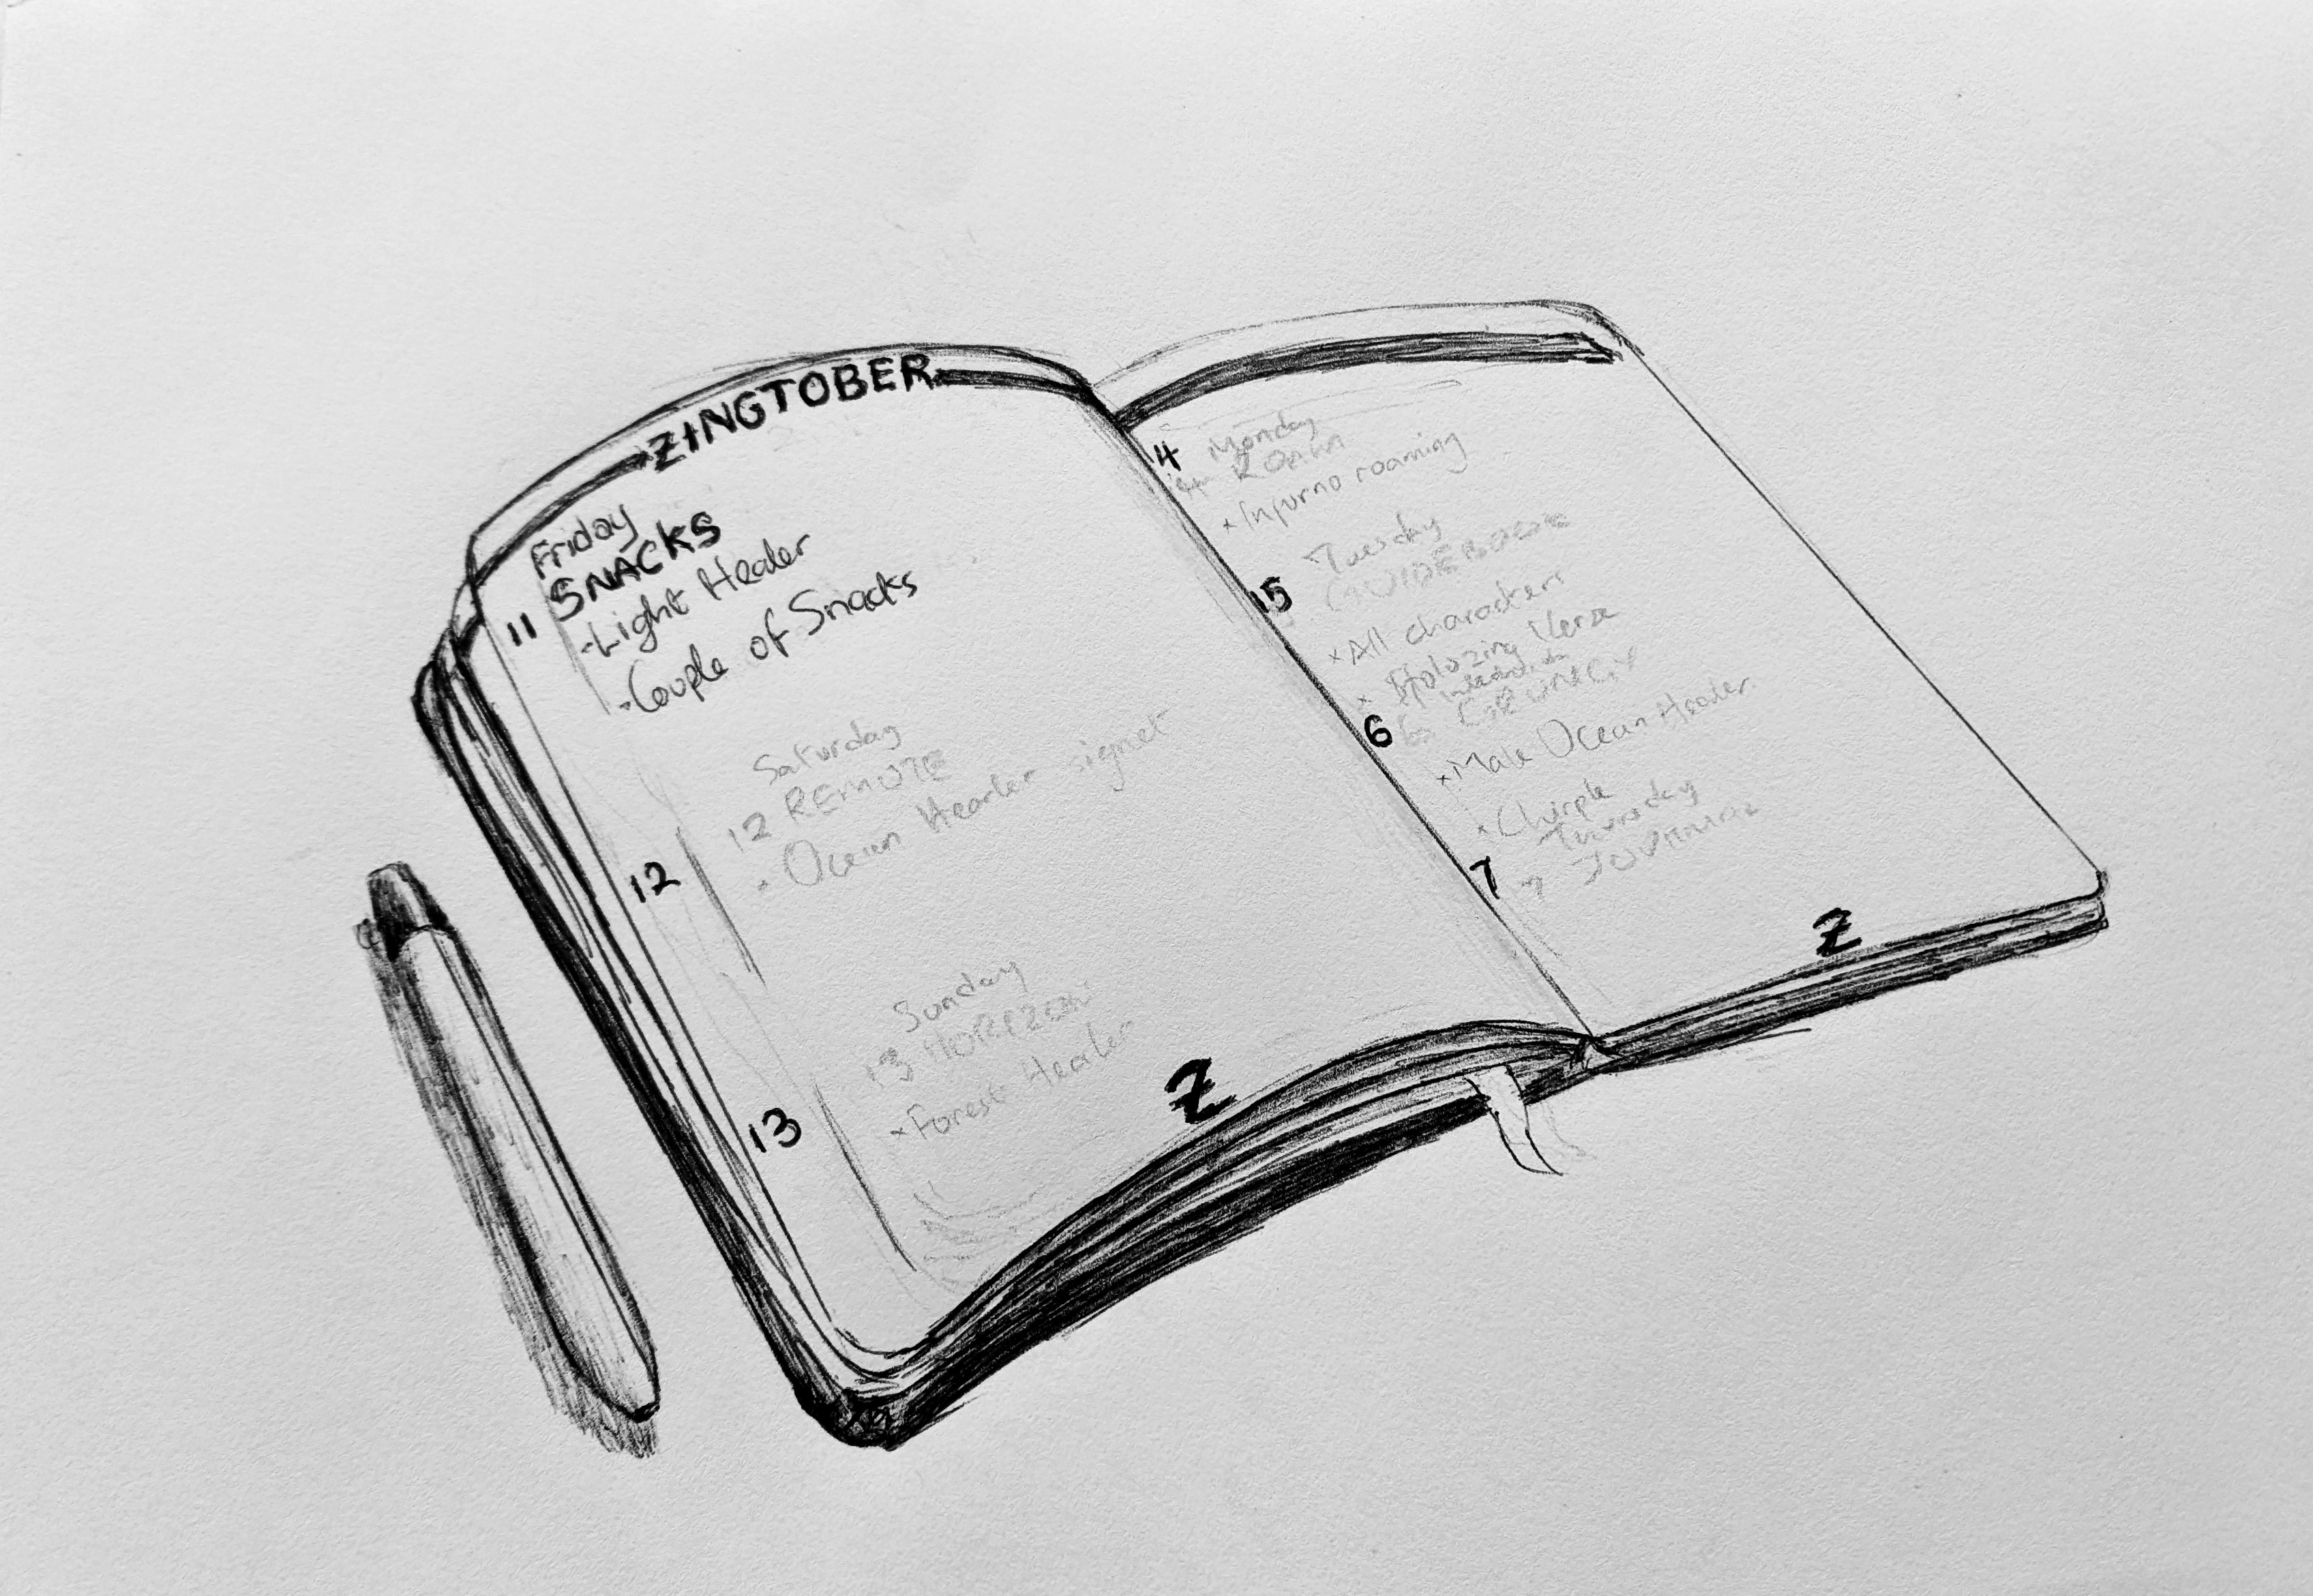 ZINGTOBER
Friday
11 SNACKS
·Light Healer
·Couple of Snacks
Saturday
12 12 REMOTE
·Ocean Healer signet
Sunday
13 13 HORIZON
·Forest Healer
Z
Monday
4 4 ROAM
×Infurno roaming
Tuesday
15 GUIDEBOOK
×All characters
× Holozing Verse
6 6 GRUNGY
×Male Ocean Healer
·Chirple
Thursday
7 7 JOURNAL
Z